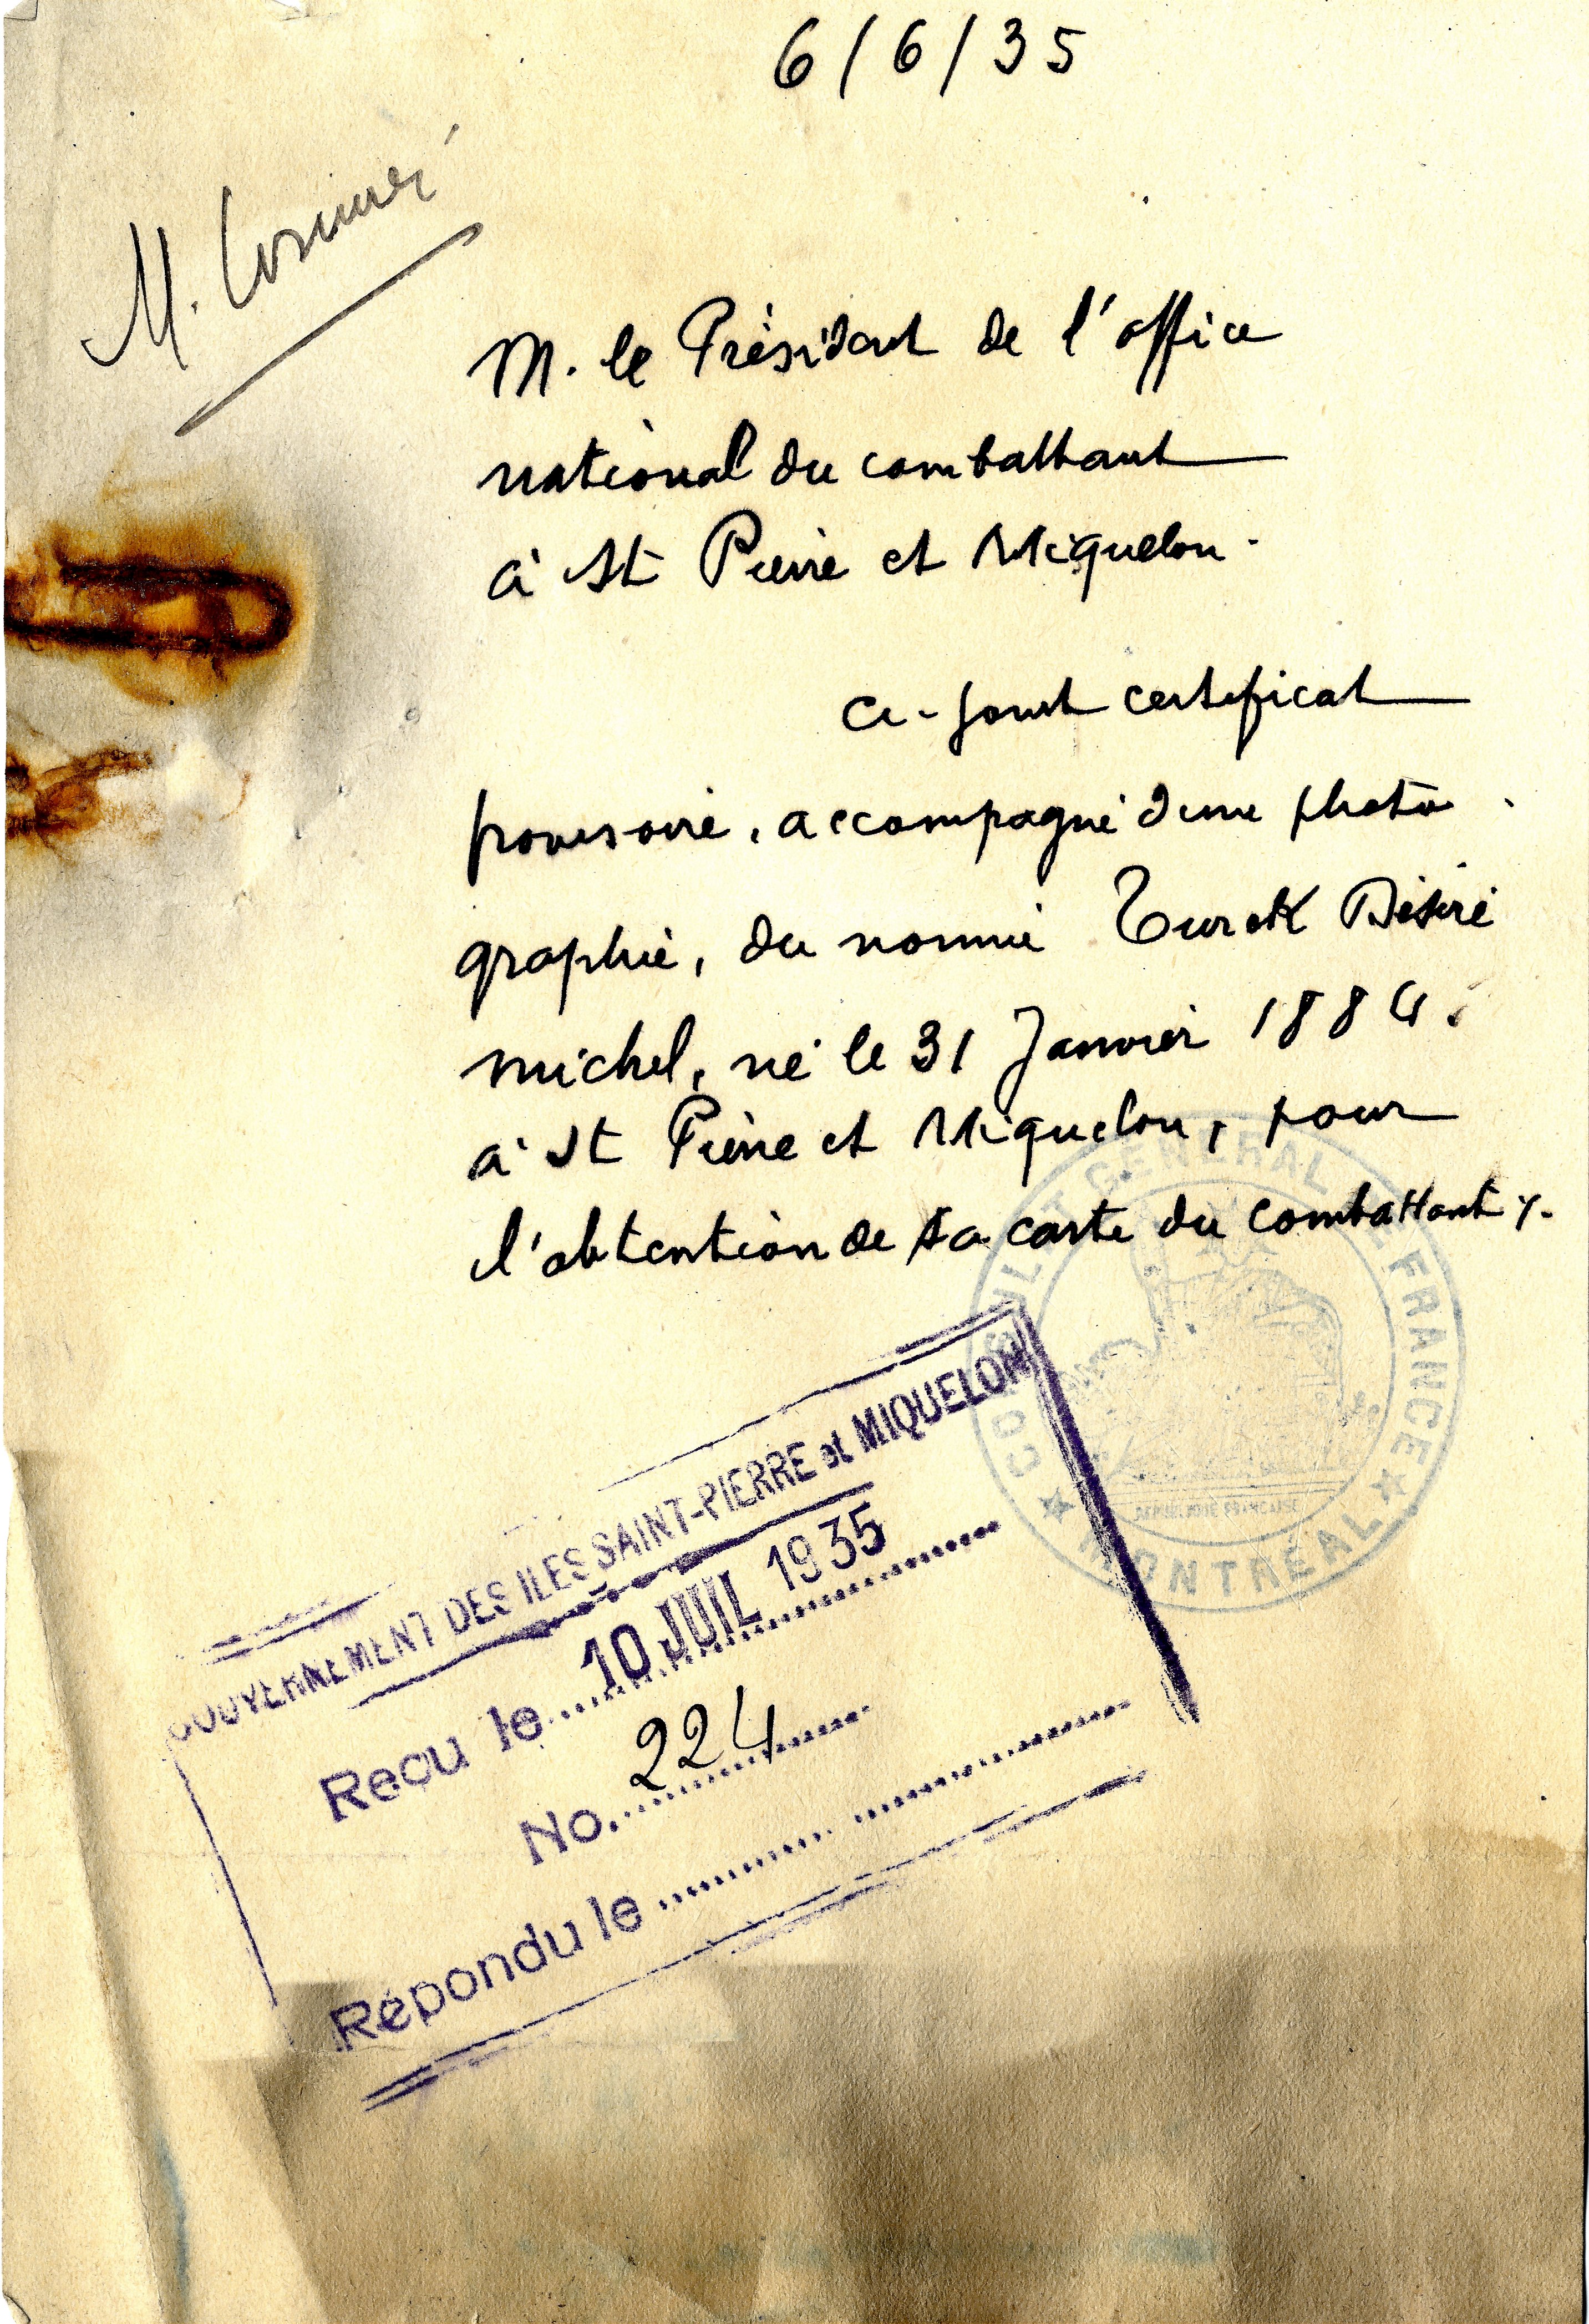 6/6/35
M.
M. le Président de l'office
national du combattant
à St Pierre et Miquelon.
ci-joint certificat
provisoire, accompagné d'une photo
graphie, du nommé Turck Désiré
michel, né le 31 Janvier 1884.
à St Pierre et Miquelon, pour
l'obtention de sa carte du combattant
CONSULAT GÉNÉRAL DE FRANCE
RÉPUBLIQUE FRANÇAISE
★ MONTRÉAL ★
GOUVERNEMENT DES ILES SAINT-PIERRE et MIQUELON
Reçu le 10 JUIL 1935
No. 224
Répondu le